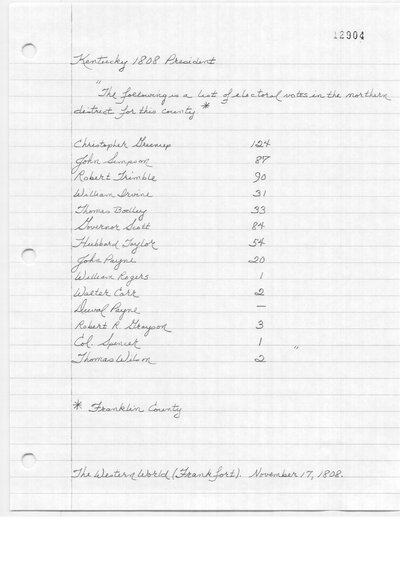 12904
Kentucky 1808 President
"The following is a list of electoral votes in the northern
district for this county *
Christopher Greenup 124
John Simpson 87
Robert Trimble 90
William Irvine 31
Thomas Bodley 33
Governor Scott 84
Hubbard Taylor 54
John Payne 20
William Rogers 1
Walter Carr 2
Duval Payne —
Robert R. Grayson 3
Col. Spencer 1 "
Thomas Wilson 2
* Franklin County
The Western World (Frankfort). November 17, 1808.